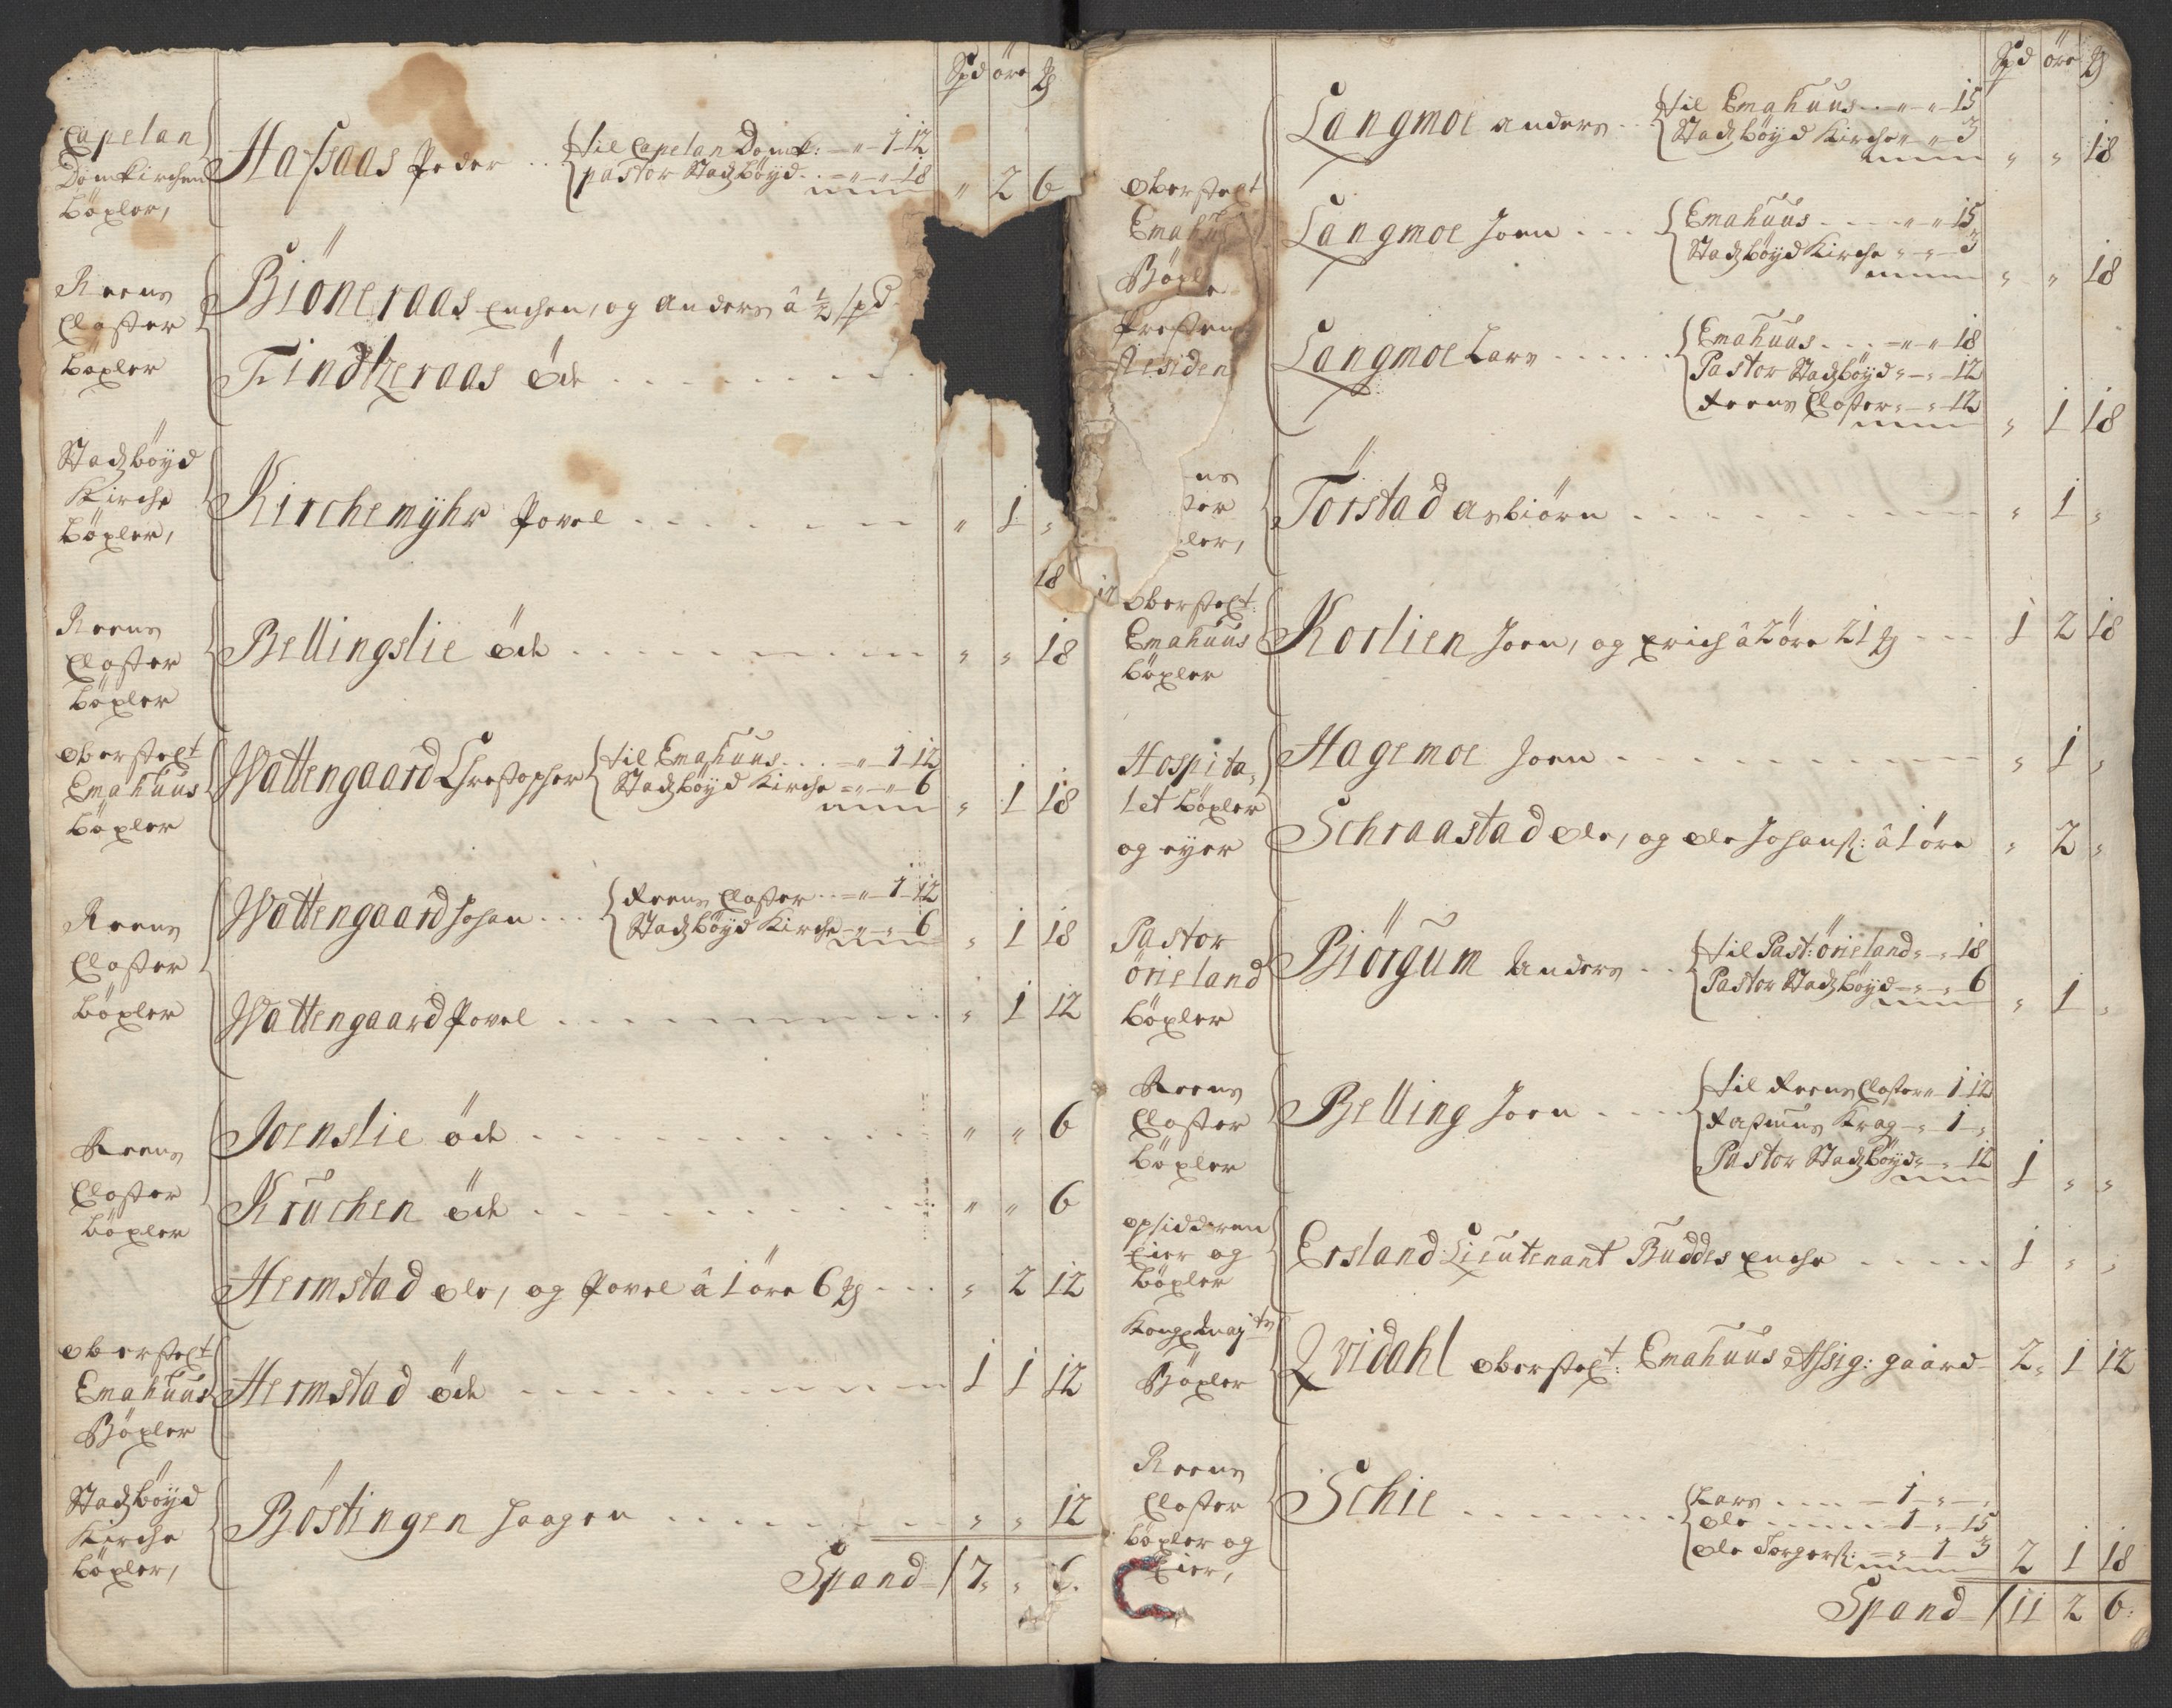 Spd öre ꝟ
Capelan
Domkirchen
böxler,
Hafsaas Peder . . til Capelan Domk: - „ - 1 - 12
pastor Stadzböyd . . - „ - „ - 18
„ 2 6
Reens
Closter
böxler
Biöneraas Enchen, og Anders â ½ spd
Findtzeraas öde
Stadzböyd
Kirche
böxler,
Kirchemÿhr Povel „ 1 „
18
Reens
Closter
böxler
Bellingslie öde „ „ 18
oberstelt
Emahuus
böxler
Wattengaard Christopher til Emahuus . . . - „ 1 - 12
Stadzböyd Kirche - „ - „ - 6
„ 1 18
Reens
Closter
böxler
Wattengaard Johan Reens Closter . . - „ - 1 - 12
Stadzböyd Kirche - „ - „ - 6
„ 1 18
Wattengaard Povel „ 1 12
Reens
Closter
böxler
Joenslie öde „ „ 6
Kruchen öde „ „ 6
Hermstad Ole, og Povel â 1 öre 6 ꝟ „ 2 12
oberstelt
Emahuus
Böxler
Hermstad öde 1 1 12
Stadzböyd
Kirche
böxler,
Böstingen Haagen „ „ 12
Spand 17 „ 6.
Spd öre ꝟ
Langmoe Anders . . til Emahuus . . - „ - „ - 15
Stadzböyd Kirche „ „ 3
„ „ 18
oberstelt
Emahus
Böxle
Langmoe Joen . . . Emahuus . . . - „ „ 15
Stadzböyd Kirche „ - „ - 3
„ „ 18
Presten
Residen
Langmoe Lars Emahuus . . . - „ - „ 18
Pastor Stadzböyd „ - „ - 12
Reens Closter „ - „ - 12
„ 1 18
ns
ter
ler,
Törstad Asbiörn „ 1 „
oberstelt:
Emahuus
böxler
Korlien Joen, og Erich â 2 öre 21 ꝟ 1 2 18
Hospita,
let böxler
og eyer
Hagemoe Joen „ 1 „
Schraastad Ole, og Ole Johans: â 1 öre „ 2 „
Pastor
örieland
böxler
Biörgum Anders . . til Past: örieland „ - „ 18
Pastor Stadzböyd - „ - „ 6
„ 1 „
Reens
Closter
böxler
Belling Joen til Reens Closter „ 1 12
Rasmus Krag - „ 1 - „
Pastor Stadzböyd „ - „ 12
1 „ „
opsidderen
Eier og
böxler
Ersland Lieutenant Buddes Enche 1 „ „
Kongl. Mayts
Böxler
Qvidahl oberstelt: Emahuus Assig: gaard 2 „ 1 12
Reens
Closter
böxler og
Eier,
Schie Lars . . . . - 1 - „ - „
Ole - 1 „ 15
Ole Torgers: - „ 1 3
2 1 18
Spand 11 2 6: